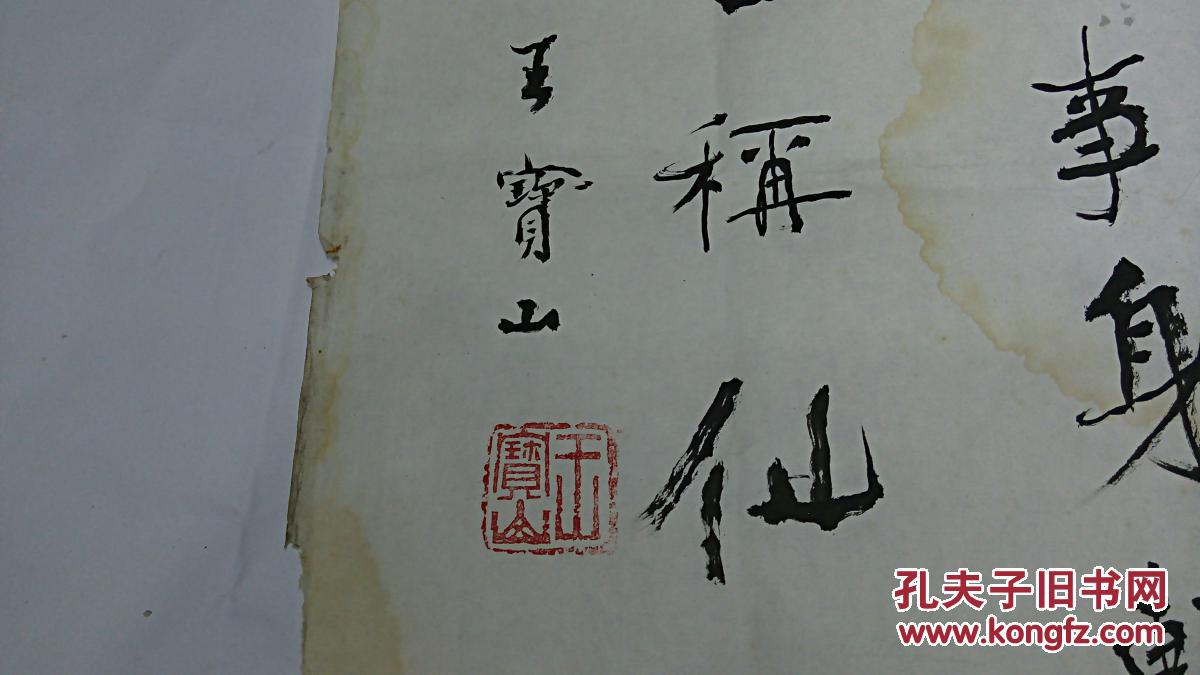 事身
稱仙
王寶山
寶山
孔夫子旧书网
www.kongfz.com